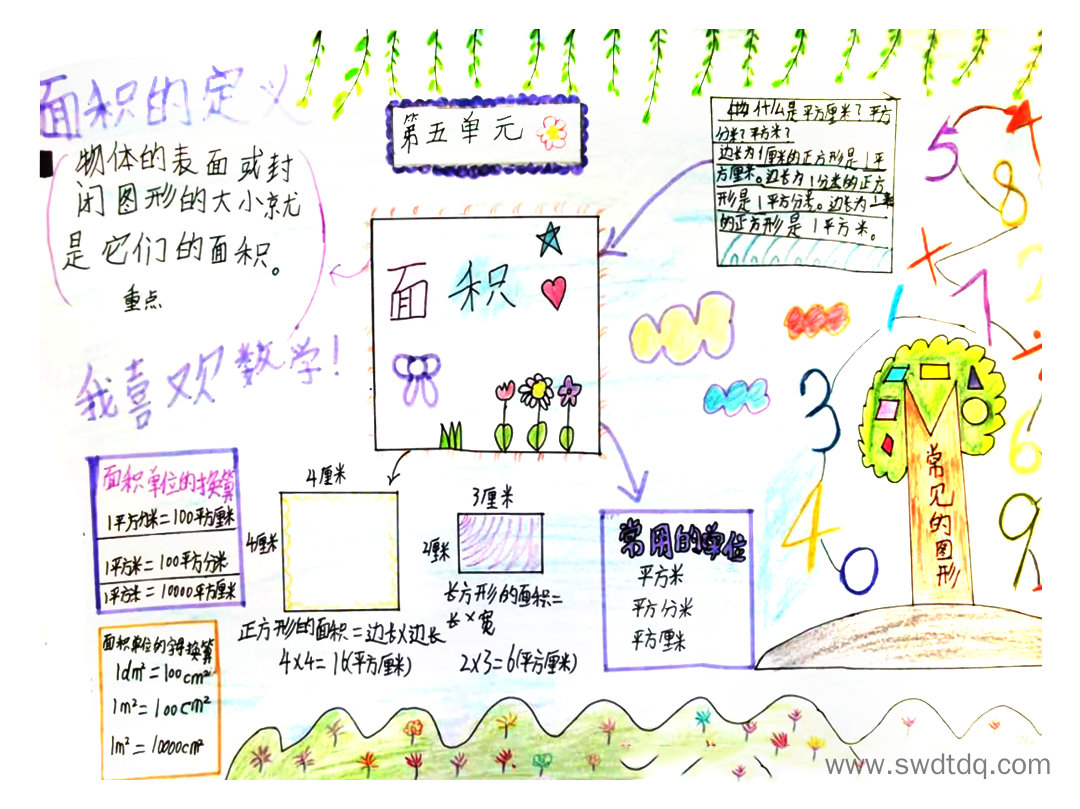 面积的定义
物体的表面或封
闭图形的大小就
是它们的面积。
重点
我喜欢数学!
第五单元
什么是平方厘米?平方
分米?平方米?
边长为1厘米的正方形是1平
方厘米。边长为1分米的正方
形是1平方分米。边长为1米
的正方形是1平方米。
面积
5
8
+
2
1
7
÷
3
6
4
0
9
常见的图形
面积单位的换算
1平方分米=100平方厘米
1平方米=100平方分米
1平方米=10000平方厘米
面积单位的换算
1dm²=100cm²
1m²=100cm²
1m²=10000cm²
4厘米
4厘米
正方形的面积=边长×边长
4×4=16(平方厘米)
3厘米
2厘米
长方形的面积=
长×宽
2×3=6(平方厘米)
常用的单位
平方米
平方分米
平方厘米
www.swdtdq.com